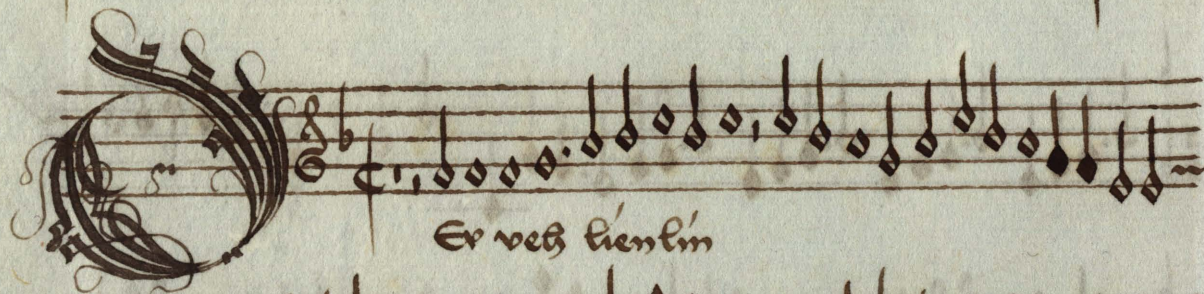 Er veh lienlin